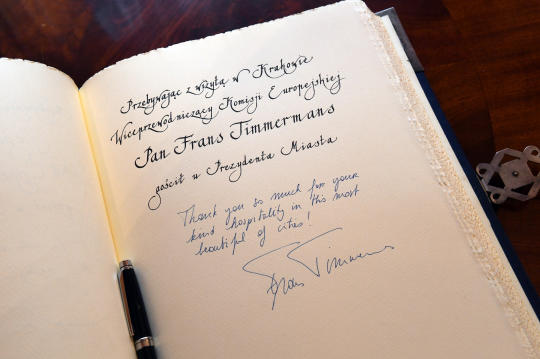 Przebywając z wizytą w Krakowie
Wiceprzewodniczący Komisji Europejskiej
Pan Frans Timmermans
gościł u Prezydenta Miasta
Thank you so much for your
kind hospitality in this most
beautiful of cities!
Frans Timmermans